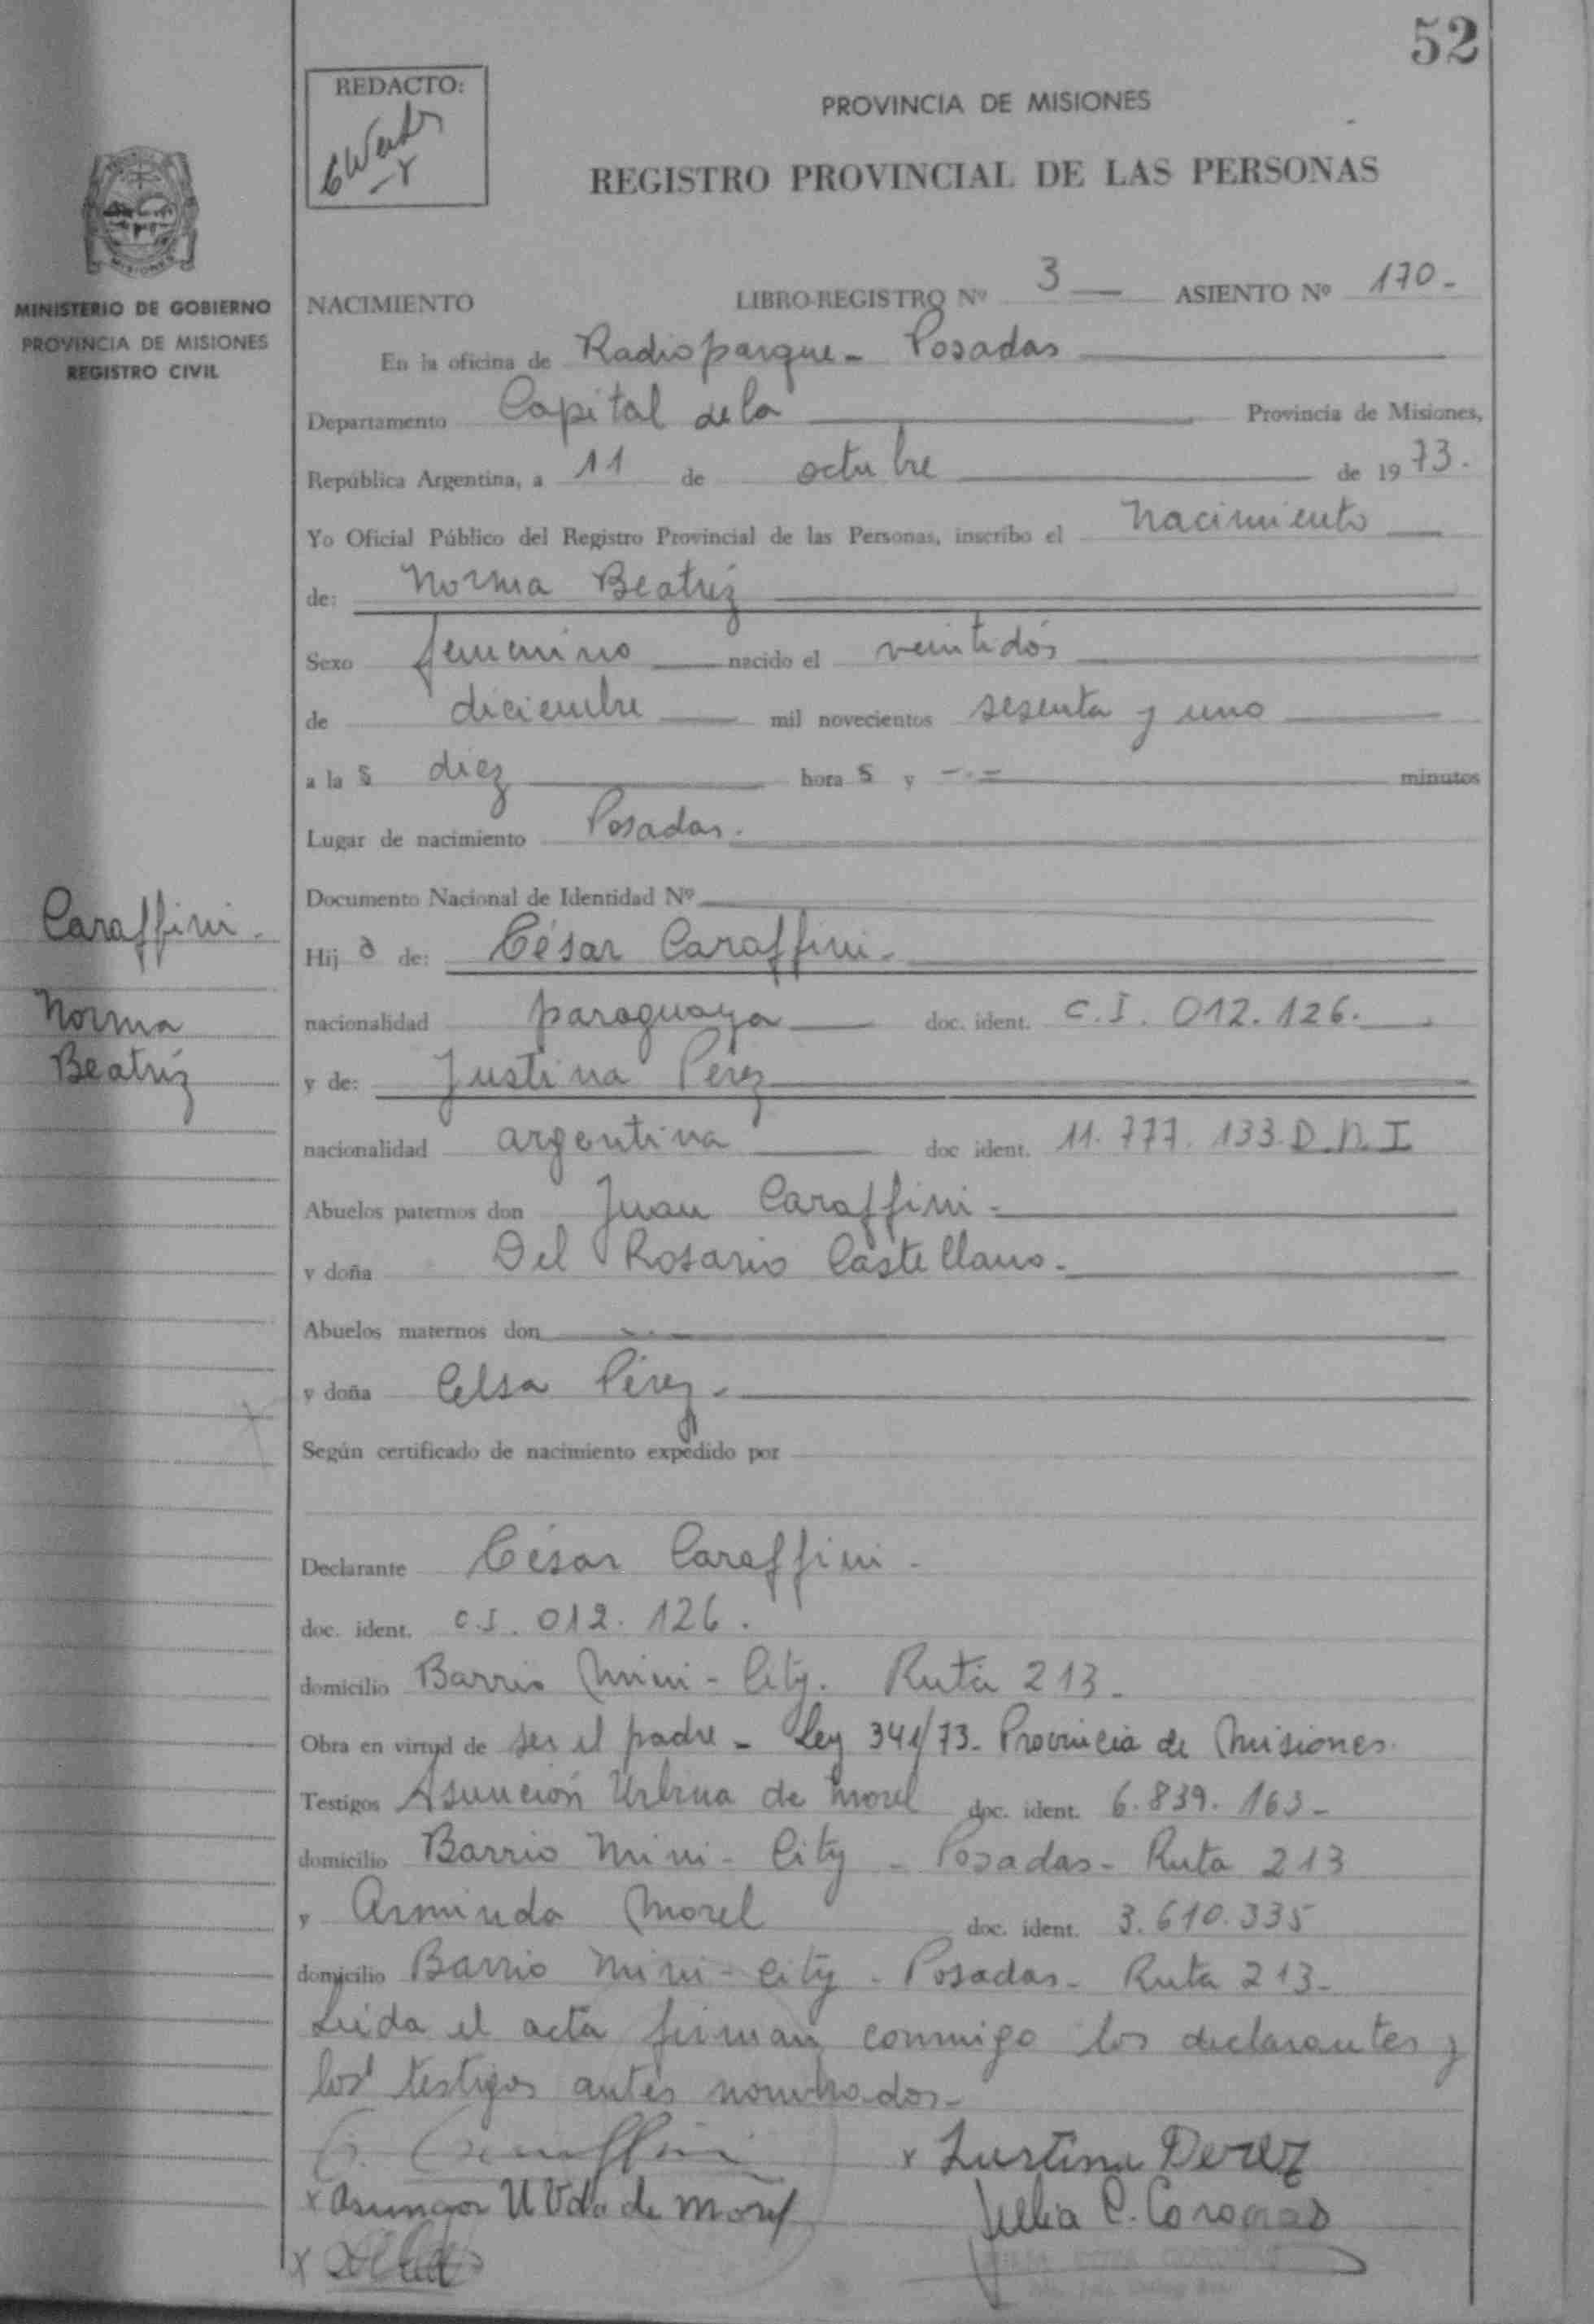 52
REDACTO:
PROVINCIA DE MISIONES
REGISTRO PROVINCIAL DE LAS PERSONAS
MISIONES
MINISTERIO DE GOBIERNO
PROVINCIA DE MISIONES
REGISTRO CIVIL
NACIMIENTO LIBRO-REGISTRO Nº 3 — ASIENTO Nº 170-
En la oficina de Radioparque - Posadas
Departamento Capital de la Provincia de Misiones,
República Argentina, a 11 de octubre de 1973.
Yo Oficial Público del Registro Provincial de las Personas, inscribo el nacimiento
de: Norma Beatriz
Sexo femenino nacido el veintidós
de diciembre mil novecientos sesenta y uno
a las diez horas y -.- minutos
Lugar de nacimiento Posadas.
Documento Nacional de Identidad Nº
Caraffini.
Hija de: César Caraffini.
Norma
nacionalidad paraguaya doc. ident. C.I. 012.126.
Beatriz
y de: Justina Pérez
nacionalidad argentina doc ident. 11.777.133 D.N.I
Abuelos paternos don Juan Caraffini -
y doña Del Rosario Castellano.
Abuelos maternos don -.-
y doña Celsa Pérez.
Según certificado de nacimiento expedido por
Declarante César Caraffini -
doc. ident. C.I. 012.126.
domicilio Barrio Mini-City. Ruta 213-
Obra en virtud de ser el padre - Ley 341/73- Provincia de Misiones.
Testigos Asunción Urbina de Morel doc. ident. 6.839.163-
domicilio Barrio Mini-City - Posadas - Ruta 213
y Arminda Morel doc. ident. 3.610.335
domicilio Barrio Mini-City - Posadas - Ruta 213-
Leída el acta firman conmigo los declarantes y
los testigos antes nombrados-
x Justina Perez
x U Vda de Morel
x